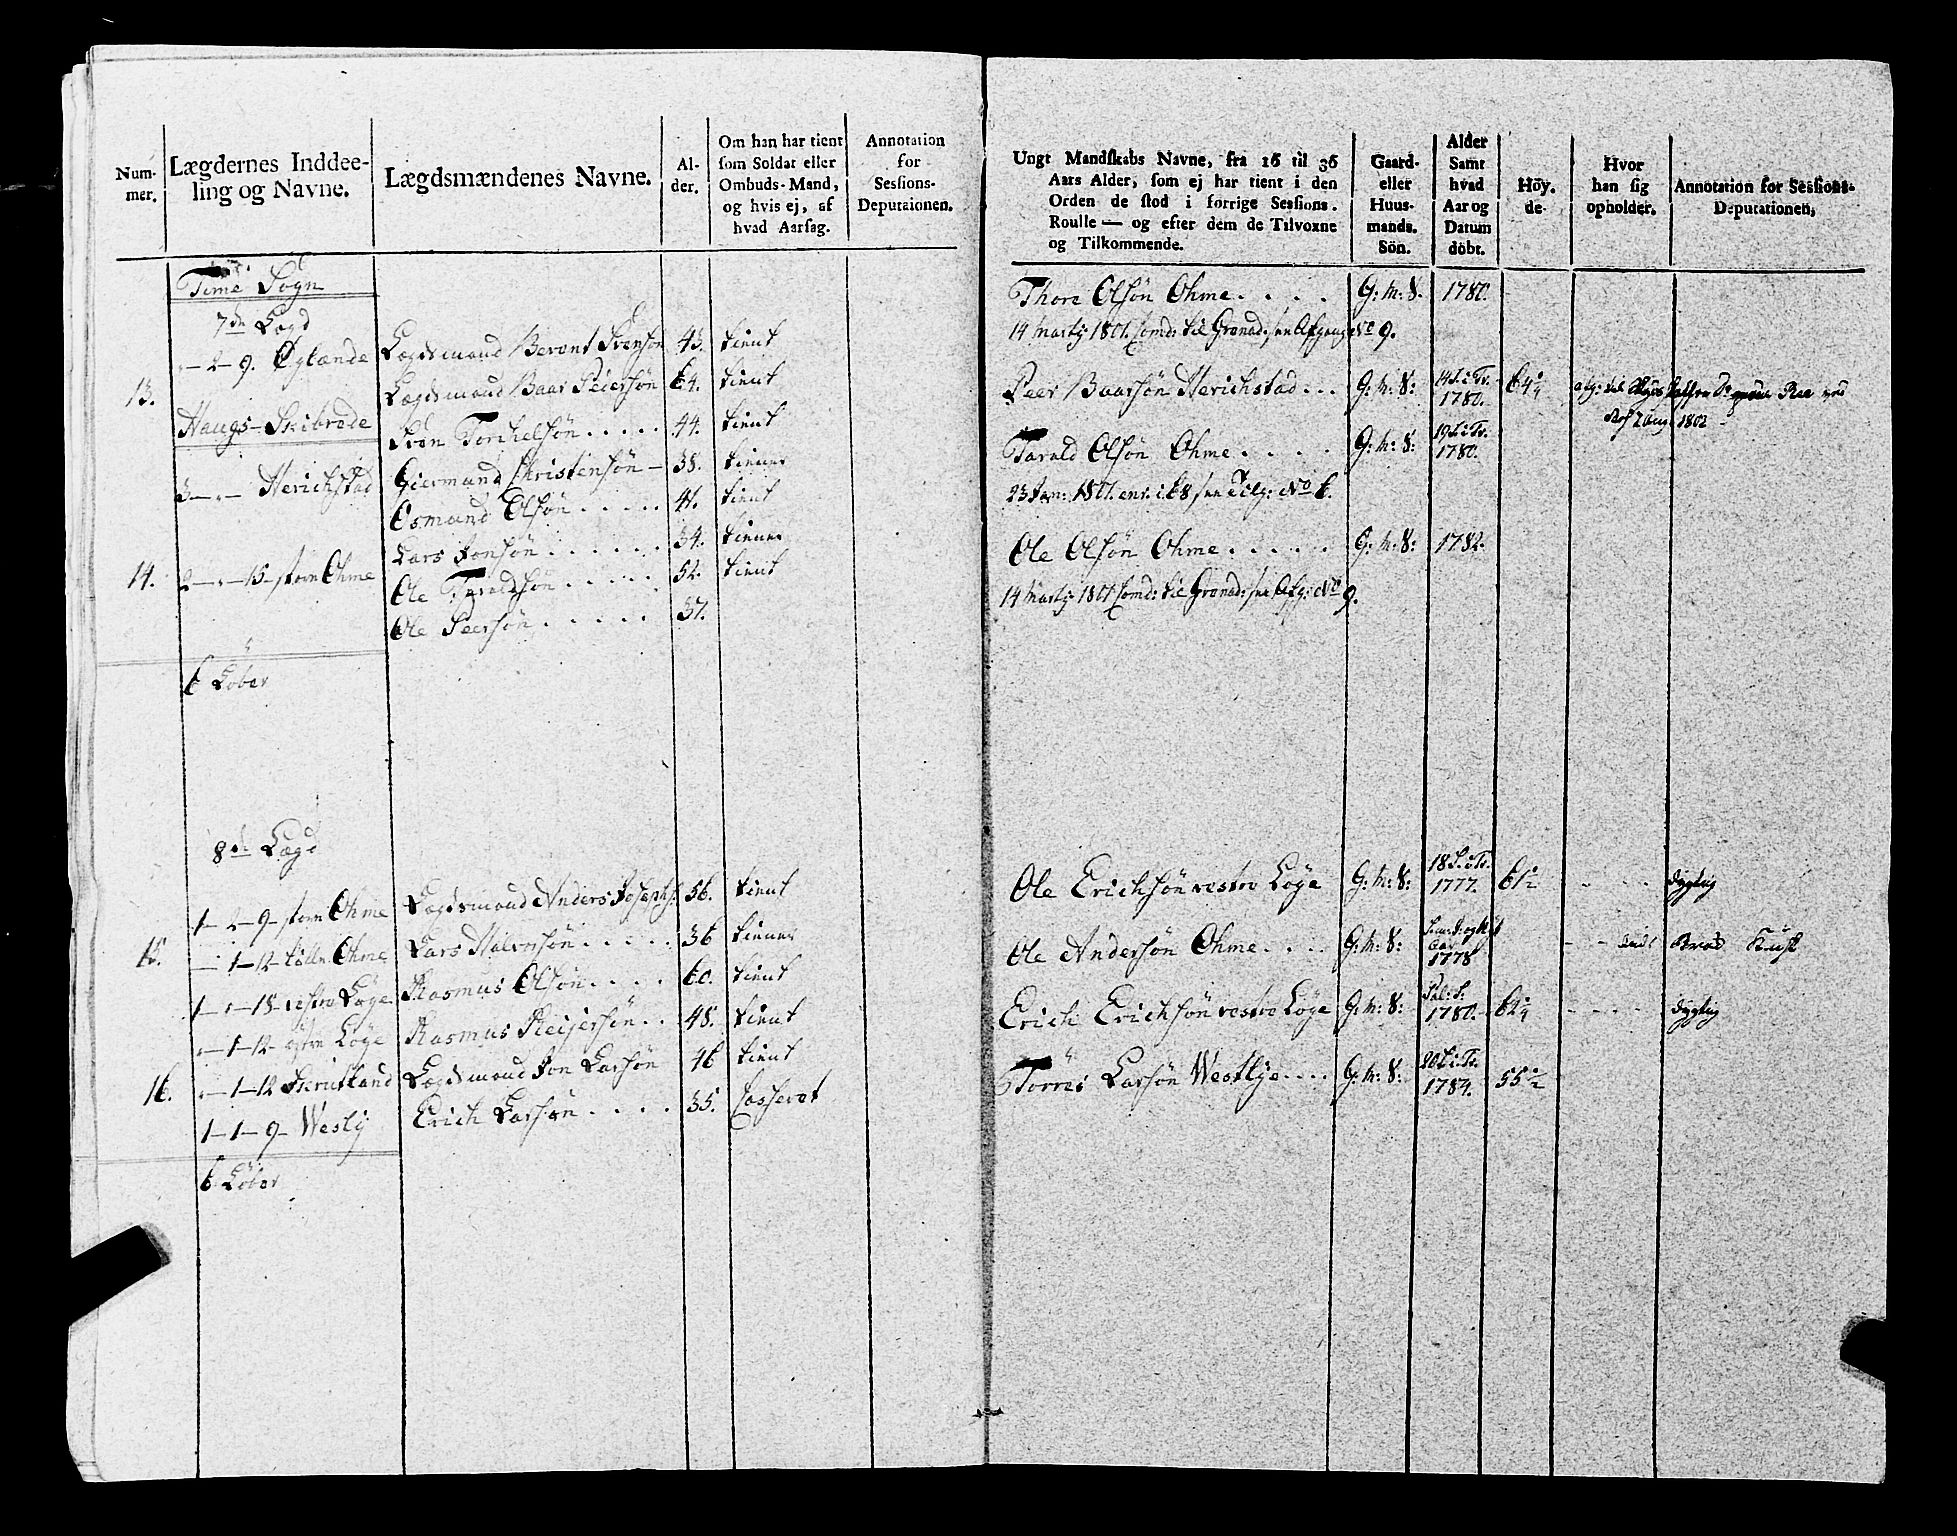 Num-
mer.
Lægdernes Inddee-
ling og Navne.
Lægdsmændenes Navne.
Al-
der.
Om han har tient
som Soldat eller
Ombuds-Mand,
og hvis ej, af
hvad Aarsag.
Annotation
for
Sessions-
Deputaionen.
Time Sogn
7de Lægd
- 2 - 9. Øglænde Lægdsmand Berent Svensøn 43. tient
13. Lægdsmand Baar Peiersøn 64. tient
Haugs-Skibrede Sven Torchelsøn..... 44. tient
3 - - - Herichstad Giermund Christensøn - 38. tiener
Osmund Olsøn..... 41. tient
Lars Jonsøn...... 34. tiener
14. 2 - - 15 - storn Ohme Ole Taraldsøn..... 52. tient
Ole Peersøn...... 37.
6 Løber
8de Lægd
1 - 2 - 9 - storn Ohme Lægdsmand Anders Josephs. 56. tient
15. - 1 - 12 - lille Ohme Lars Halvorsøn..... 36 tiener
1 - - 18 - vestre Løge Rasmus Olsøn.... 60. tient
- 1 - 12 - østre Løge Rasmus Reijersøn.. 48. tient
16. - 1 - 12 Skrutland Lægdsmand Jon Larsøn 46 tient
1 - 1 - 9 - Westly Erich Larsøn.... 35. Casserat
6 Løber
Ungt Mandskabs Navne, fra 16 til 36
Aars Alder, som ej har tient i den
Orden de stod i forrige Sessions.
Roulle — og efter dem de Tilvoxne
og Tilkommende.
Gaard-
eller
Huus-
mands.
Sön.
Alder
Samt
hvad
Aar og
Datum
döbt.
Höy-
de-
Hvor
han sig
opholder.
Annotation for Sessions-
Deputationen,
Thore Olsøn Ohme.... G: M: S. 1780.
14 Martj 1801. Comd: til Grenad: see Afgang No 9.
Peer Baarsøn Herichstad... G: M: S: 14 S. i Tr. 1780. 64 1/4
1802
Tarald Olsøn Ohme.... G: M: S: 19 S. i Tr. 1780.
23 Jan: 1801. enr: see Tilg: No 6.
Ole Olsøn Ohme..... G: M: S: 1782.
14 Martj 1801 Comd: til Grenad: see Afg: No 9.
Ole Erichsøn vestre Løge G: M: S: 18 S. i Tr. 1777. 61 1/2 - - - dygtig
Ole Andersøn Ohme.... G: M: S: 1778 - - Brød
Erich Erichsøn vestre Løge G: M: S: Pal: S: 1780. 62 1/4 - - - - dygtig
Torris Larsøn Westlye.... G: M: S: 20 S. i Tr. 1784. 55 1/2